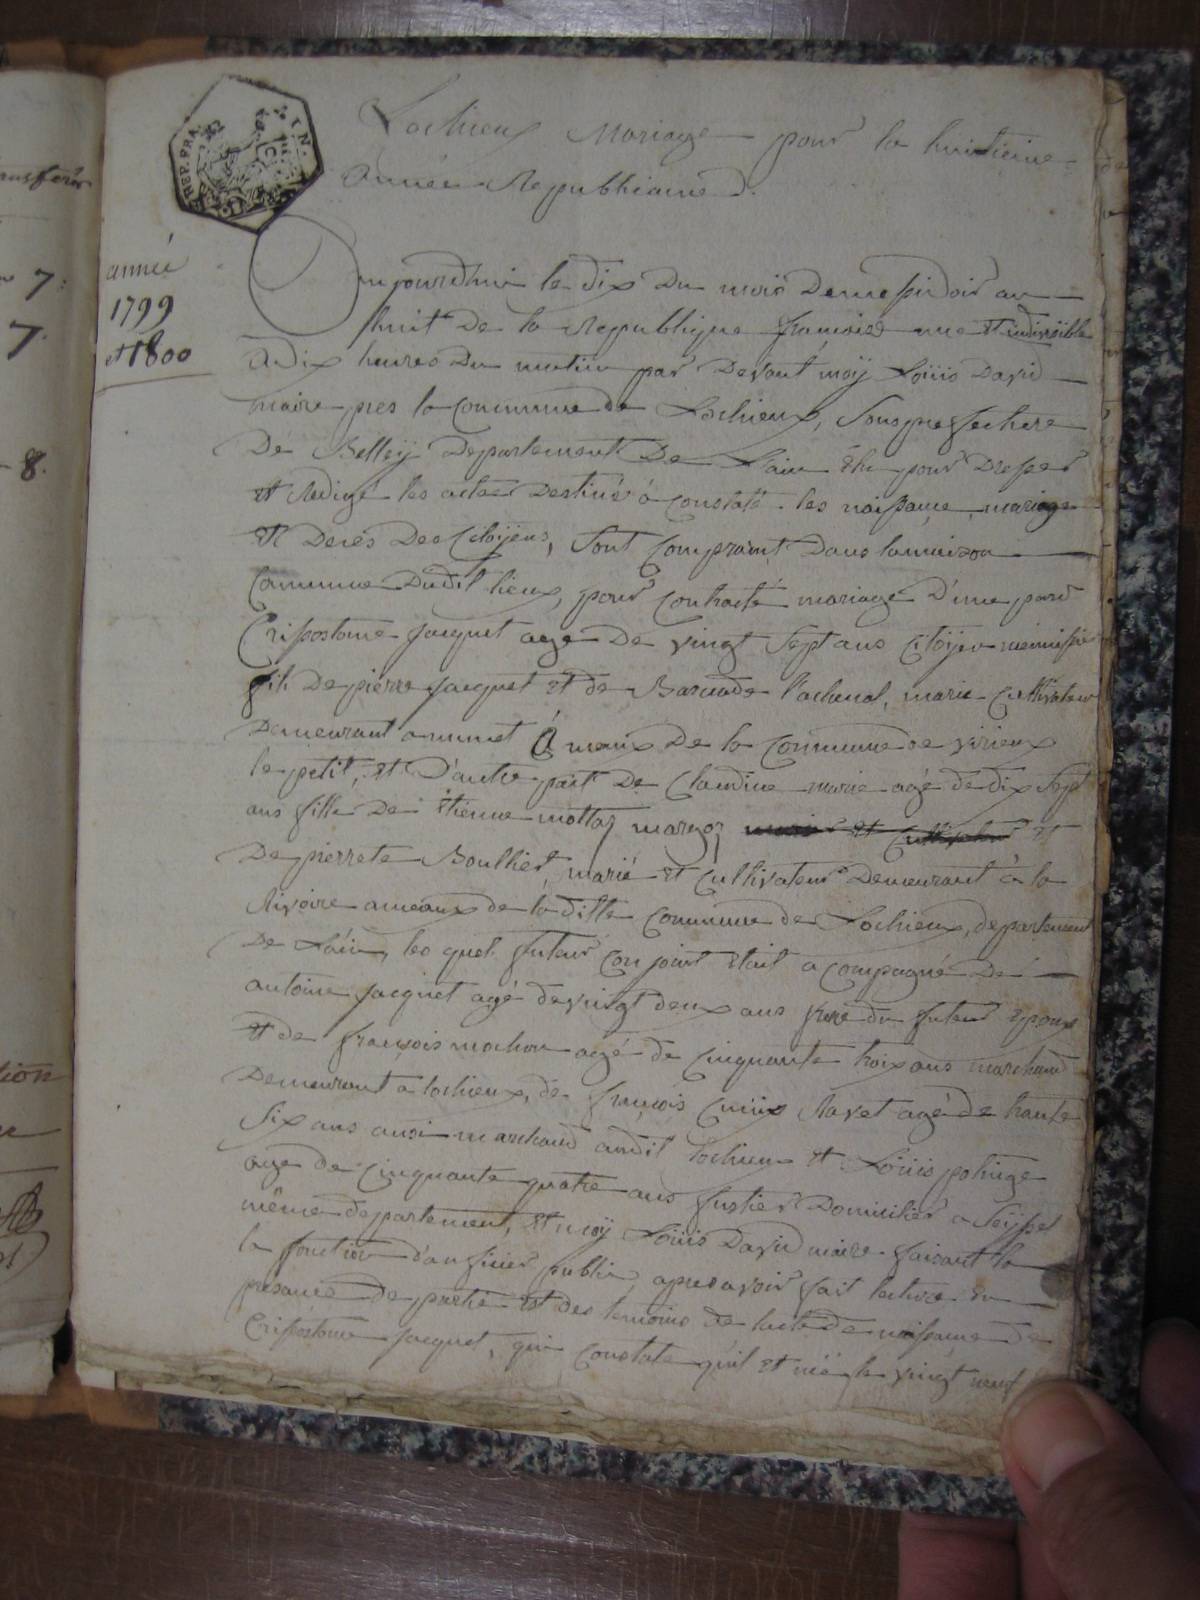 Lochieux Mariage pour la huitieme
année Republicaine
année
1799
et 1800
REP. FRA.
Aujourdhui le dix du mois de messidor an
huit de la Republique francaise une et indivisible
a dix heures du matin par devant moÿ Loüis David
maire pres la commune de Lochieux, Sousprefecture
De Belleÿ Departement De Lain Elu pour Dresser
et Redigé les actes Destiné a Constaté les naissance, mariage
et Decés Des Citoÿens, Sont Comparaint Dans lamaison
Commune Dudit lieux, pour Contracté mariage D'une part
Crisostome Jacquet agé De vingt Sept ans Citoÿen
fils De pierre Jacquet et de Bernarde Lachenal, marié Cultivateur
Demeurant a munet Ameaux De la Commune de virieux
le petit, et D'autre part De Claudine marie agé de dix Sept
ans fille De Etienne mottaz margoz et
De pierrete Boullier, marié et Cultivateur Demeurant à la
Rivoire ameaux de la ditte Commune de Lochieux, departement
De Lain, les quel futur Conjoint Etait acompagné De
antoine Jacquet agé de vingt deux ans frere du futur Epoux
et de françois mochon agé de Cinquante trois ans marchand
Demeurant a lochieux, de françois Ravet agé de trante
Six ans ausi marchand audit lochieux et Loüis
age de Cinquante quatre ans fustier Domicilier a Seÿssel
même departement, et moÿ Loüis David maire faisant la
la fonction d'anficier public, apres avoir fait lecture En
presance de partie et des temoins de lacte de naissance de
Crisostome Jacquet, qui Constate quil et néé le vingt neuf
7.
7.
8.